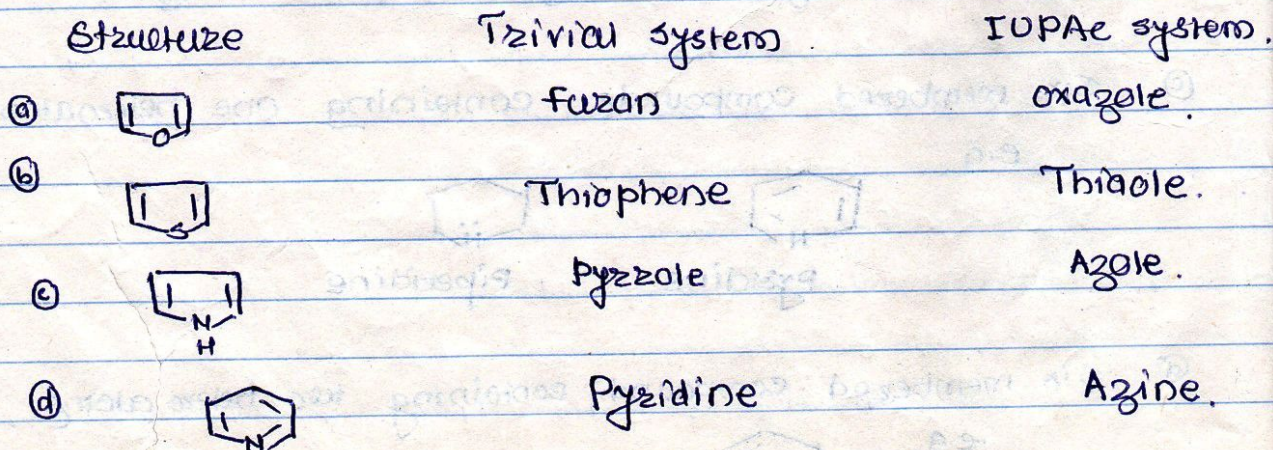 Structure Trivial system. IUPAC system.
ⓐ O furan oxazole.
ⓑ S Thiophene Thiaole.
ⓒ N H Pyrrole Azole.
ⓓ N Pyridine Azine.